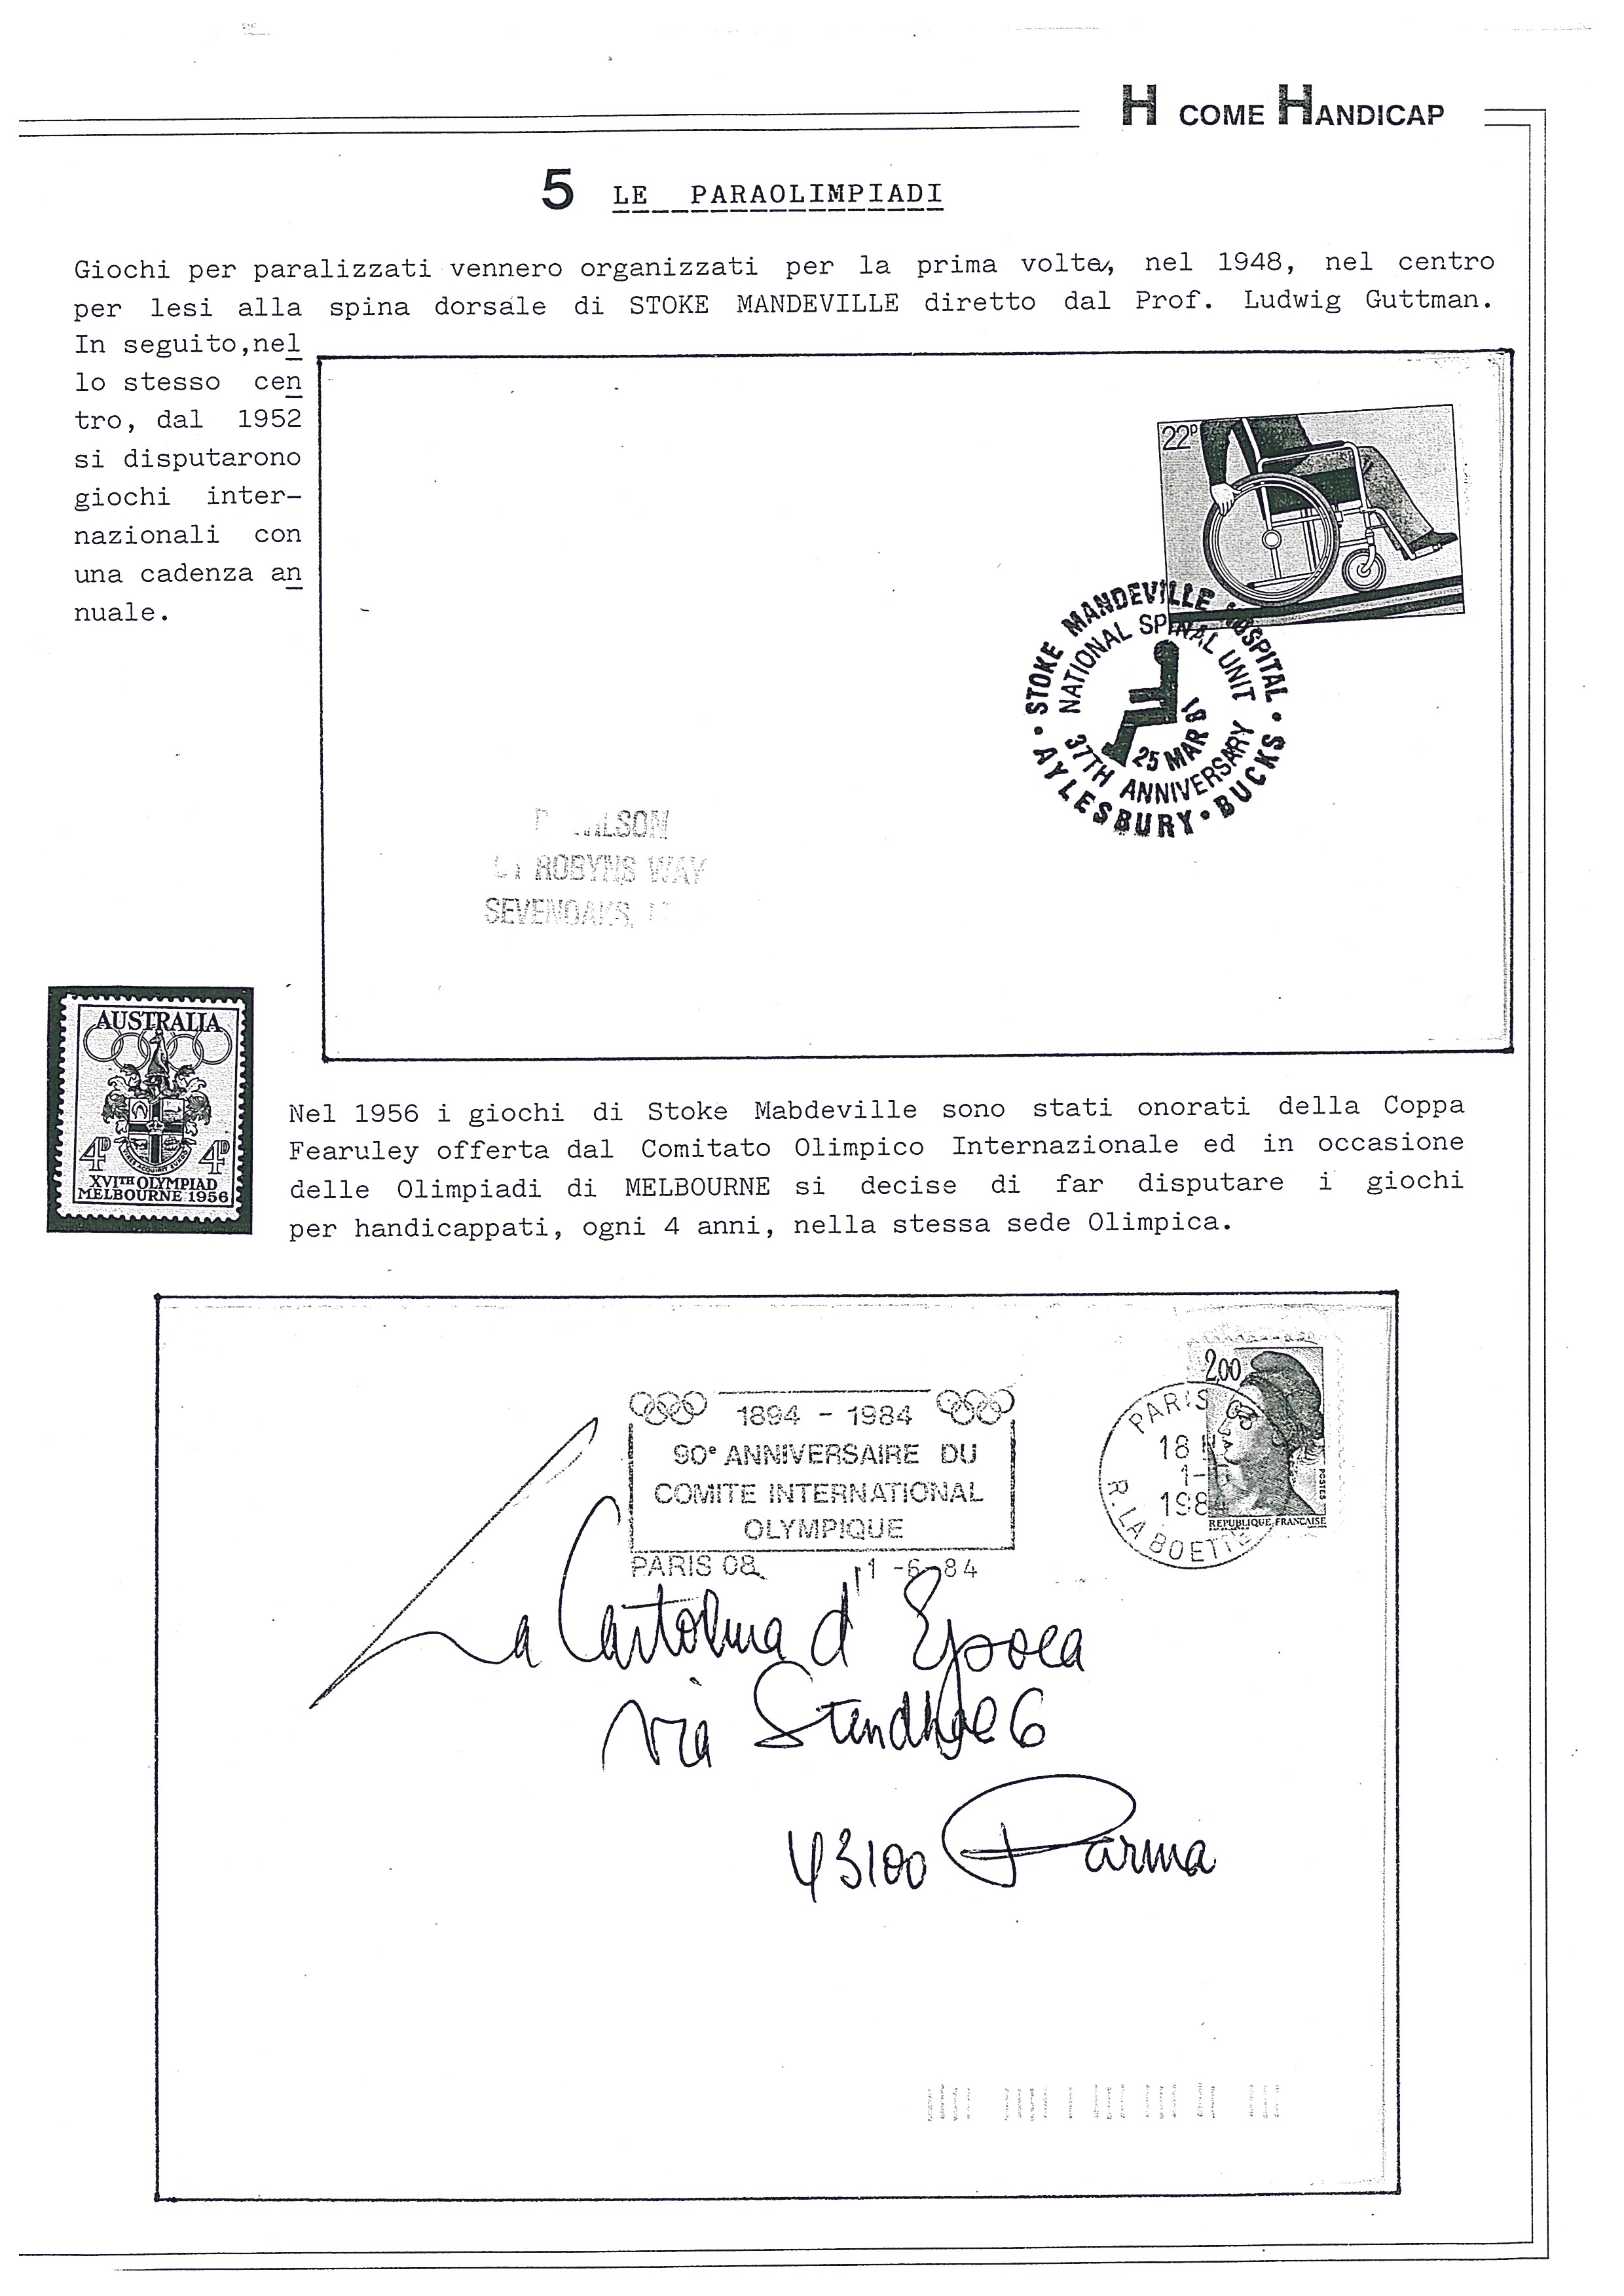 H COME HANDICAP
5 LE PARAOLIMPIADI
Giochi per paralizzati vennero organizzati per la prima volta, nel 1948, nel centro
per lesi alla spina dorsale di STOKE MANDEVILLE diretto dal Prof. Ludwig Guttman.
In seguito,nel
lo stesso cen
tro, dal 1952
si disputarono
giochi inter-
nazionali con
una cadenza an
nuale.
22P
STOKE MANDEVILLE HOSPITAL
NATIONAL SPINAL UNIT
25 MAR 81
37TH ANNIVERSARY
AYLESBURY • BUCKS
ROBYNS WAY
SEVENOAKS,
AUSTRALIA
4D 4D
XVITH OLYMPIAD
MELBOURNE 1956
Nel 1956 i giochi di Stoke Mabdeville sono stati onorati della Coppa
Fearuley offerta dal Comitato Olimpico Internazionale ed in occasione
delle Olimpiadi di MELBOURNE si decise di far disputare i giochi
per handicappati, ogni 4 anni, nella stessa sede Olimpica.
1894 - 1984
90e ANNIVERSAIRE DU
COMITE INTERNATIONAL
OLYMPIQUE
PARIS 08 1 -6 84
2,00
POSTES
REPUBLIQUE FRANCAISE
PARIS
18 H
1-
1984
R. LA BOETIE
La Cartolina d'Epoca
via Stendhal 6
43100 Parma